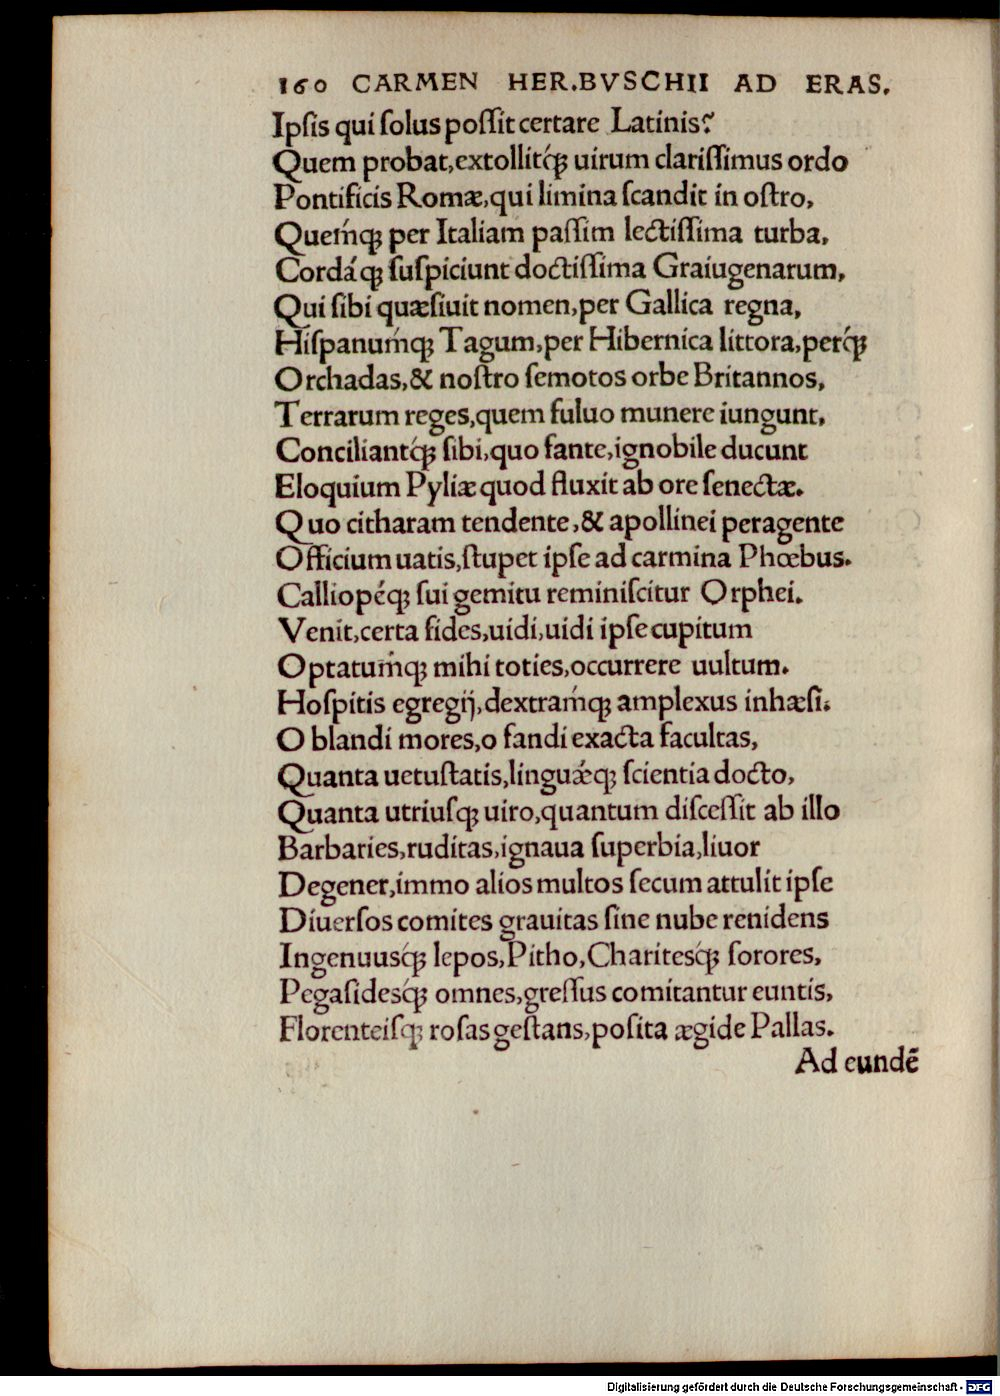 160 CARMEN HER.BVSCHII AD ERAS.
Ipſis qui ſolus poſſit certare Latinis?
Quem probat,extollitq́ꝫ uirum clariſſimus ordo
Pontificis Romæ,qui limina ſcandit in oſtro,
Queḿqꝫ per Italiam paſſim lectiſſima turba,
Cordáqꝫ ſuſpiciunt doctiſſima Graiugenarum,
Qui ſibi quæſiuit nomen,per Gallica regna,
Hiſpanuḿqꝫ Tagum,per Hibernica littora,perq́ꝫ
Orchadas,& noſtro ſemotos orbe Britannos,
Terrarum reges,quem fuluo munere iungunt,
Conciliantq́ꝫ ſibi,quo fante,ignobile ducunt
Eloquium Pyliæ quod fluxit ab ore ſenectæ.
Quo citharam tendente,& apollinei peragente
Officium uatis,ſtupet ipſe ad carmina Phœbus.
Calliopéqꝫ ſui gemitu reminiſcitur Orphei.
Venit,certa fides,uidi,uidi ipſe cupitum
Optatuḿqꝫ mihi toties,occurrere uultum.
Hoſpitis egregij,dextraḿqꝫ amplexus inhæſi.
O blandi mores,o fandi exacta facultas,
Quanta uetuſtatis,linguǽqꝫ ſcientia docto,
Quanta utriuſqꝫ uiro,quantum diſceſſit ab illo
Barbaries,ruditas,ignaua ſuperbia,liuor
Degener,immo alios multos ſecum attulit ipſe
Diuerſos comites grauitas ſine nube renidens
Ingenuusq́ꝫ lepos,Pitho,Charitesq́ꝫ ſorores,
Pegaſidesq́ꝫ omnes,greſſus comitantur euntis,
Florenteiſqꝫ roſas geſtans,poſita ægide Pallas.
Ad eundẽ
Digitalisierung gefördert durch die Deutsche Forschungsgemeinschaft - DFG